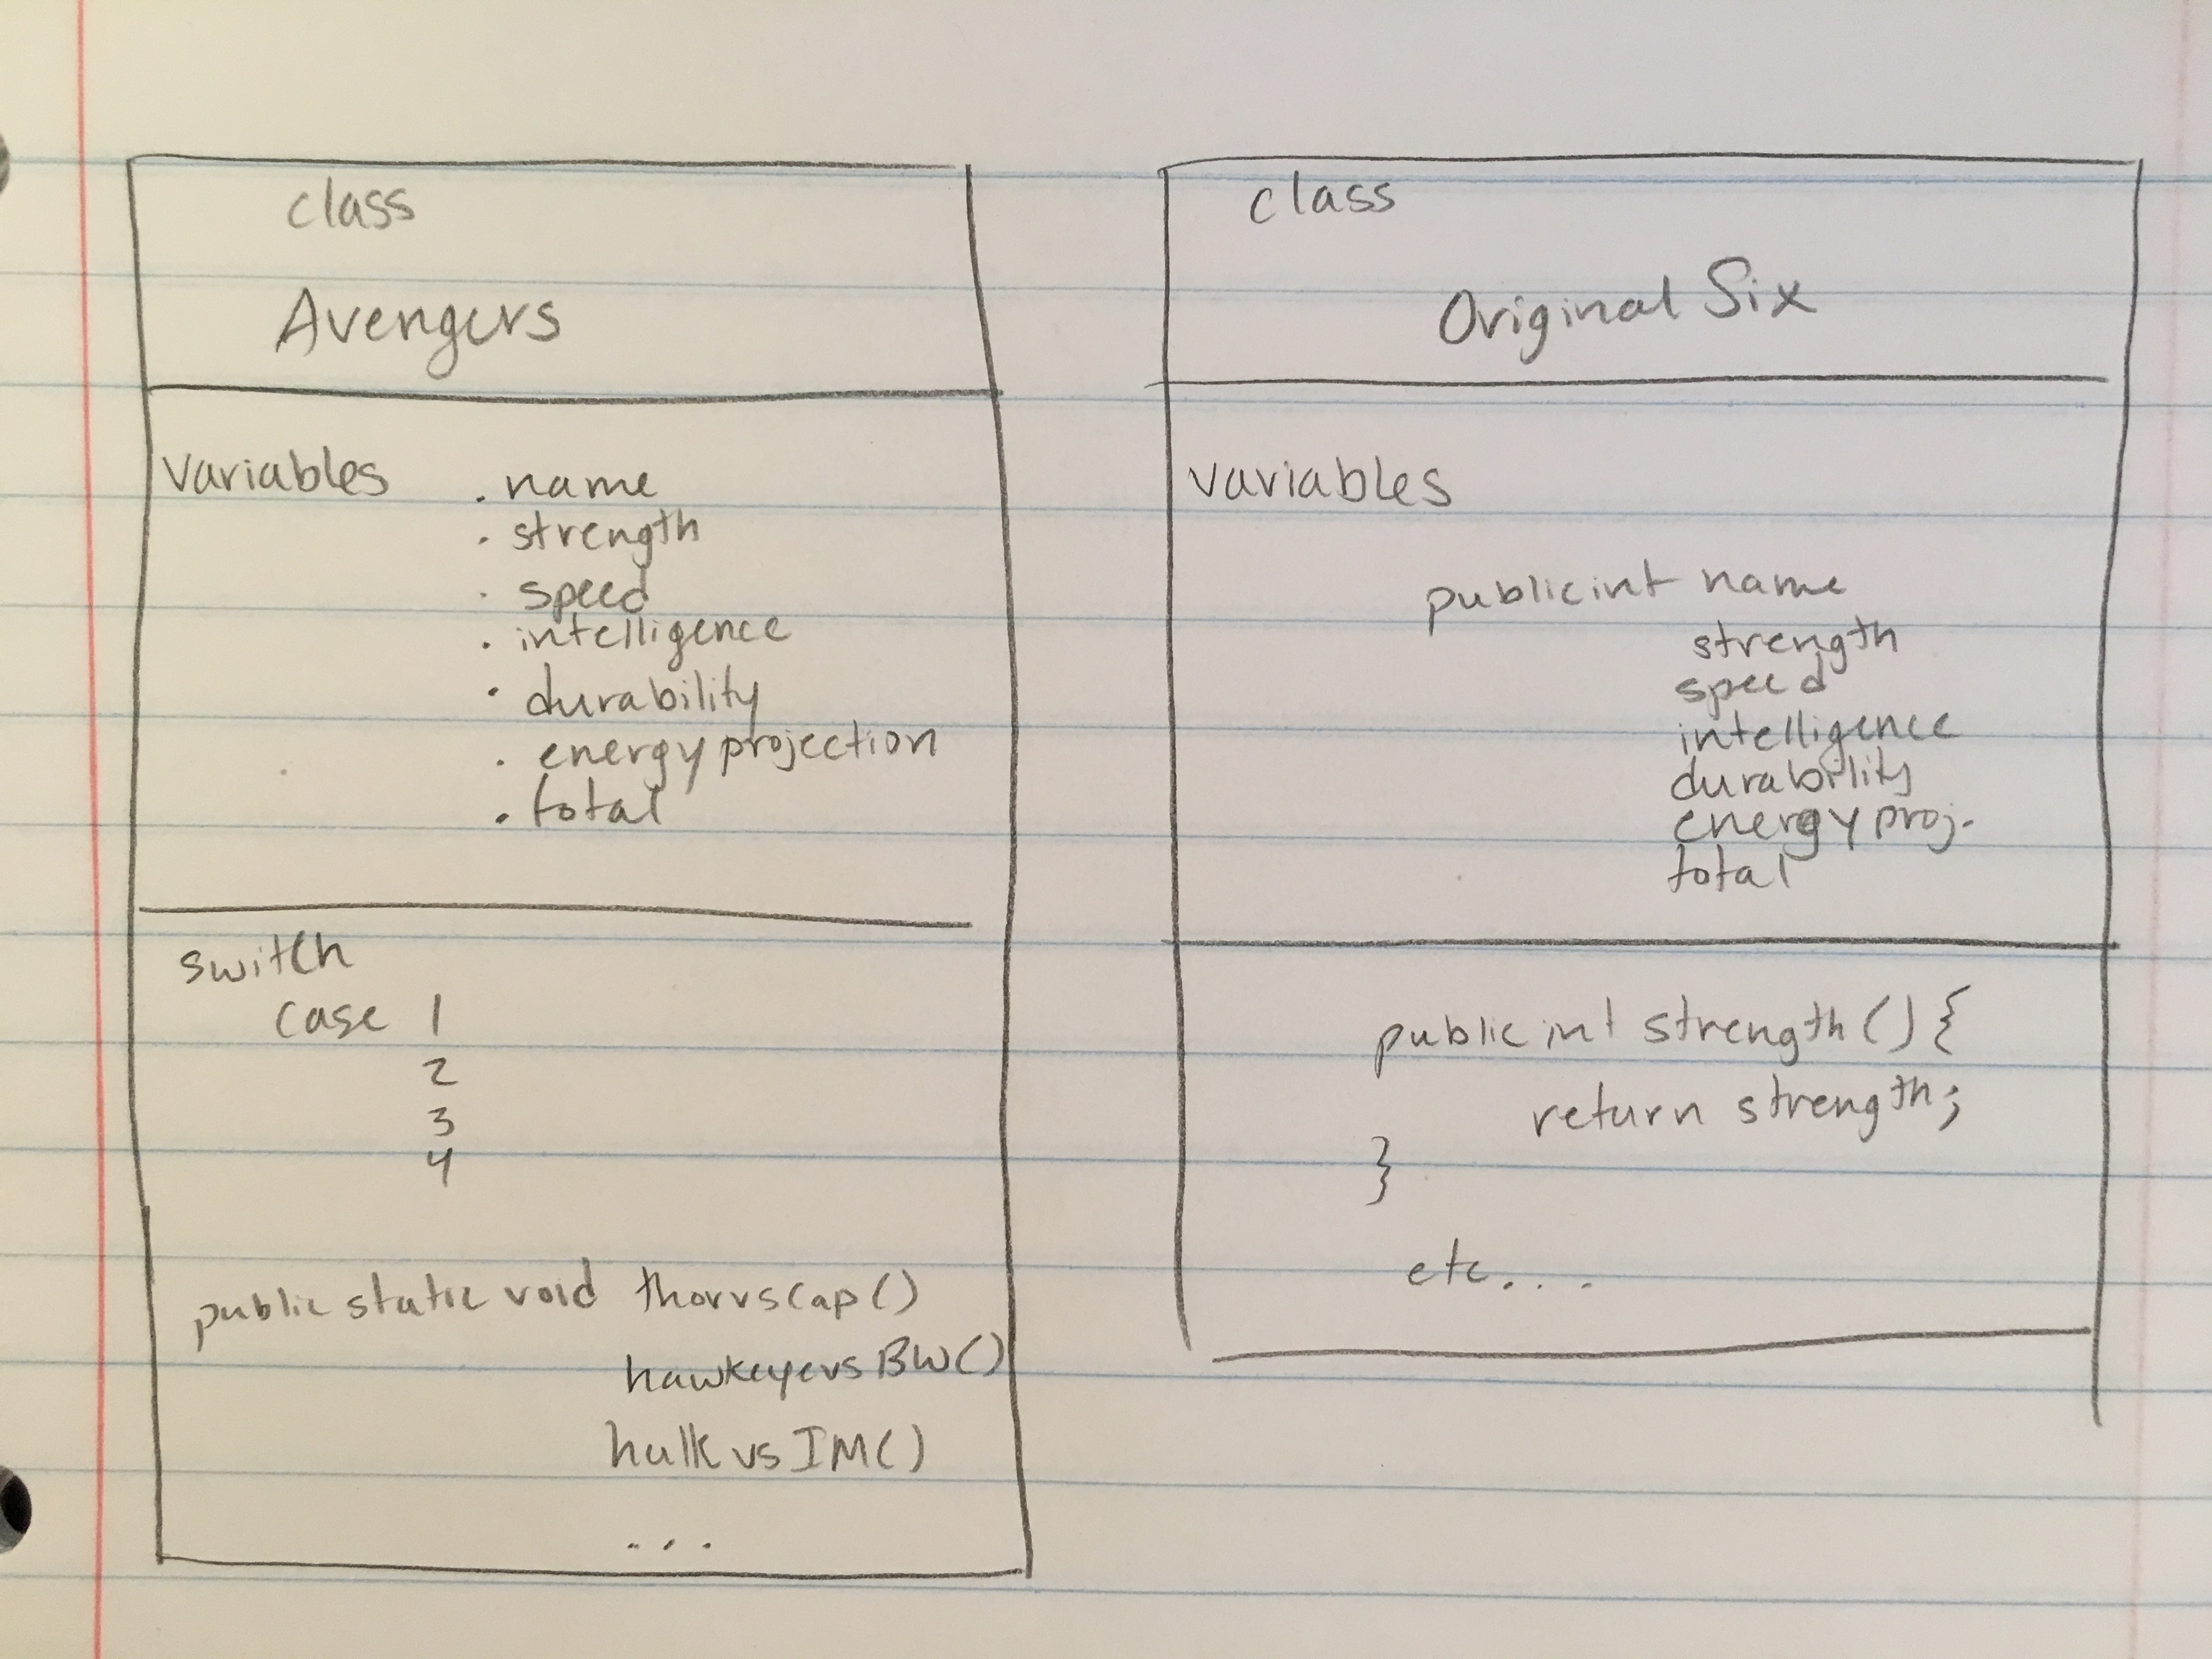 class
Avengers
variables . name
. strength
. speed
. intelligence
. durability
. energy projection
. total
switch
case 1
2
3
4
public static void thorvsCap()
hawkeyevsBW()
hulkvsIM()
...
class
Original Six
variables
public int name
strength
speed
intelligence
durability
energy proj.
total
public int strength() {
return strength;
}
etc....